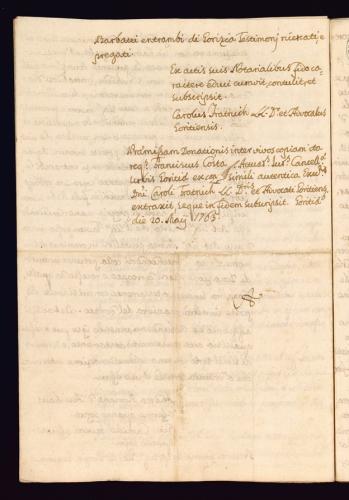 Barbatti entrambi di Gorizia Testimonj ricercati, e
pregati.
Ex actis suis Notarialibus fideca-
ractere edidi cumvit, contulit, et
subscripsit.
Carolus Fratnich LL: Dr: et Advocatus
Goritiensis.
Præmissam Donationis inter vivos copiam da
Franciscus Costa Juris Cancell:
Urbis Goritiæ ex simili autentica
Dni Caroli Fratnich LL: Dris et Advocati Goritiens
extraxit, seque in fidem subscripsit. Goritiæ
die 20. Maij 1765